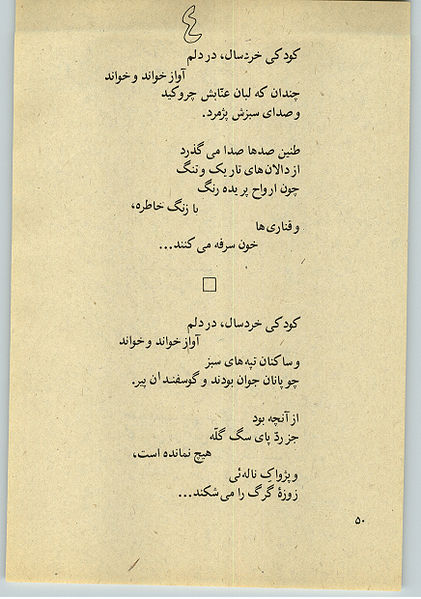 ۴
کودکی خردسال، در دلم
آواز خواند و خواند
چندان که لبان عنّابش چروکید
و صدای سبزش پژمرد.
طنین صدها صدا می گذرد
از دالان‌های تاریک و تنگ
چون ارواح پریده رنگ
با زنگ خاطره،
و قناری‌ها
خون سرفه می کنند...
کودکی خردسال، در دلم
آواز خواند و خواند
و ساکنان تپه‌های سبز
چوپانان جوان بودند و گوسفندان پیر.
از آنچه بود
جز ردّ پای سگ گلّه
هیچ نمانده است،
و پژواکِ ناله‌ئی
زوزهٔ گرگ را می شکند...
۵۰